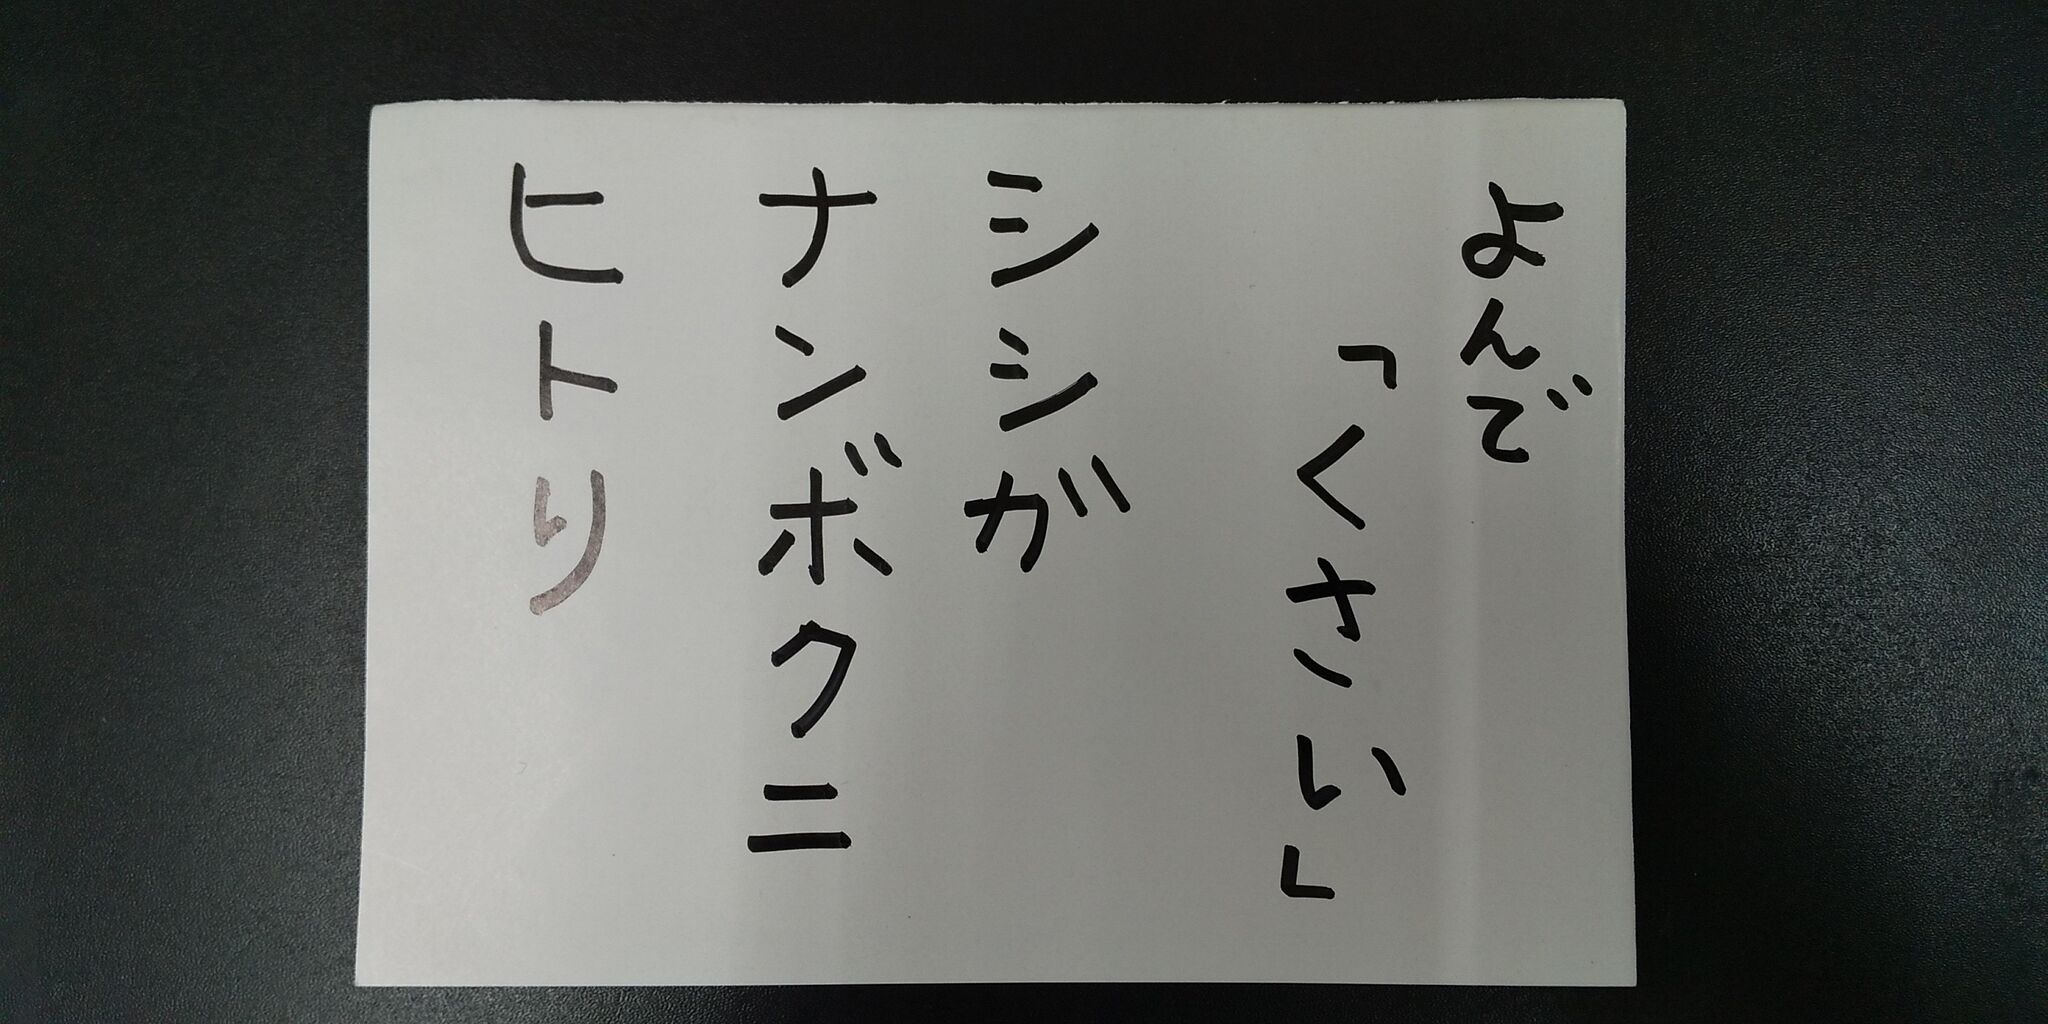 よんで
「くさい」
シシが
ナンボクニ
ヒトリ